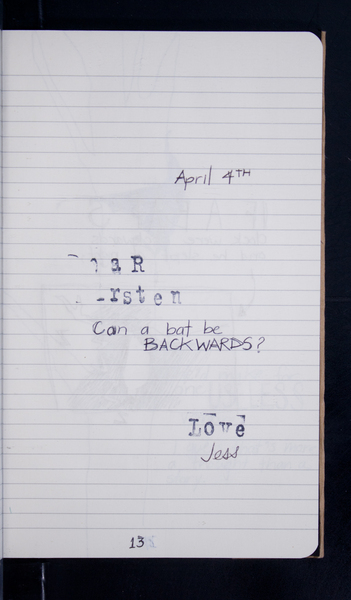 April 4TH
aR
rsten
Can a bat be
BACKWARDS?
Love
Jess
13